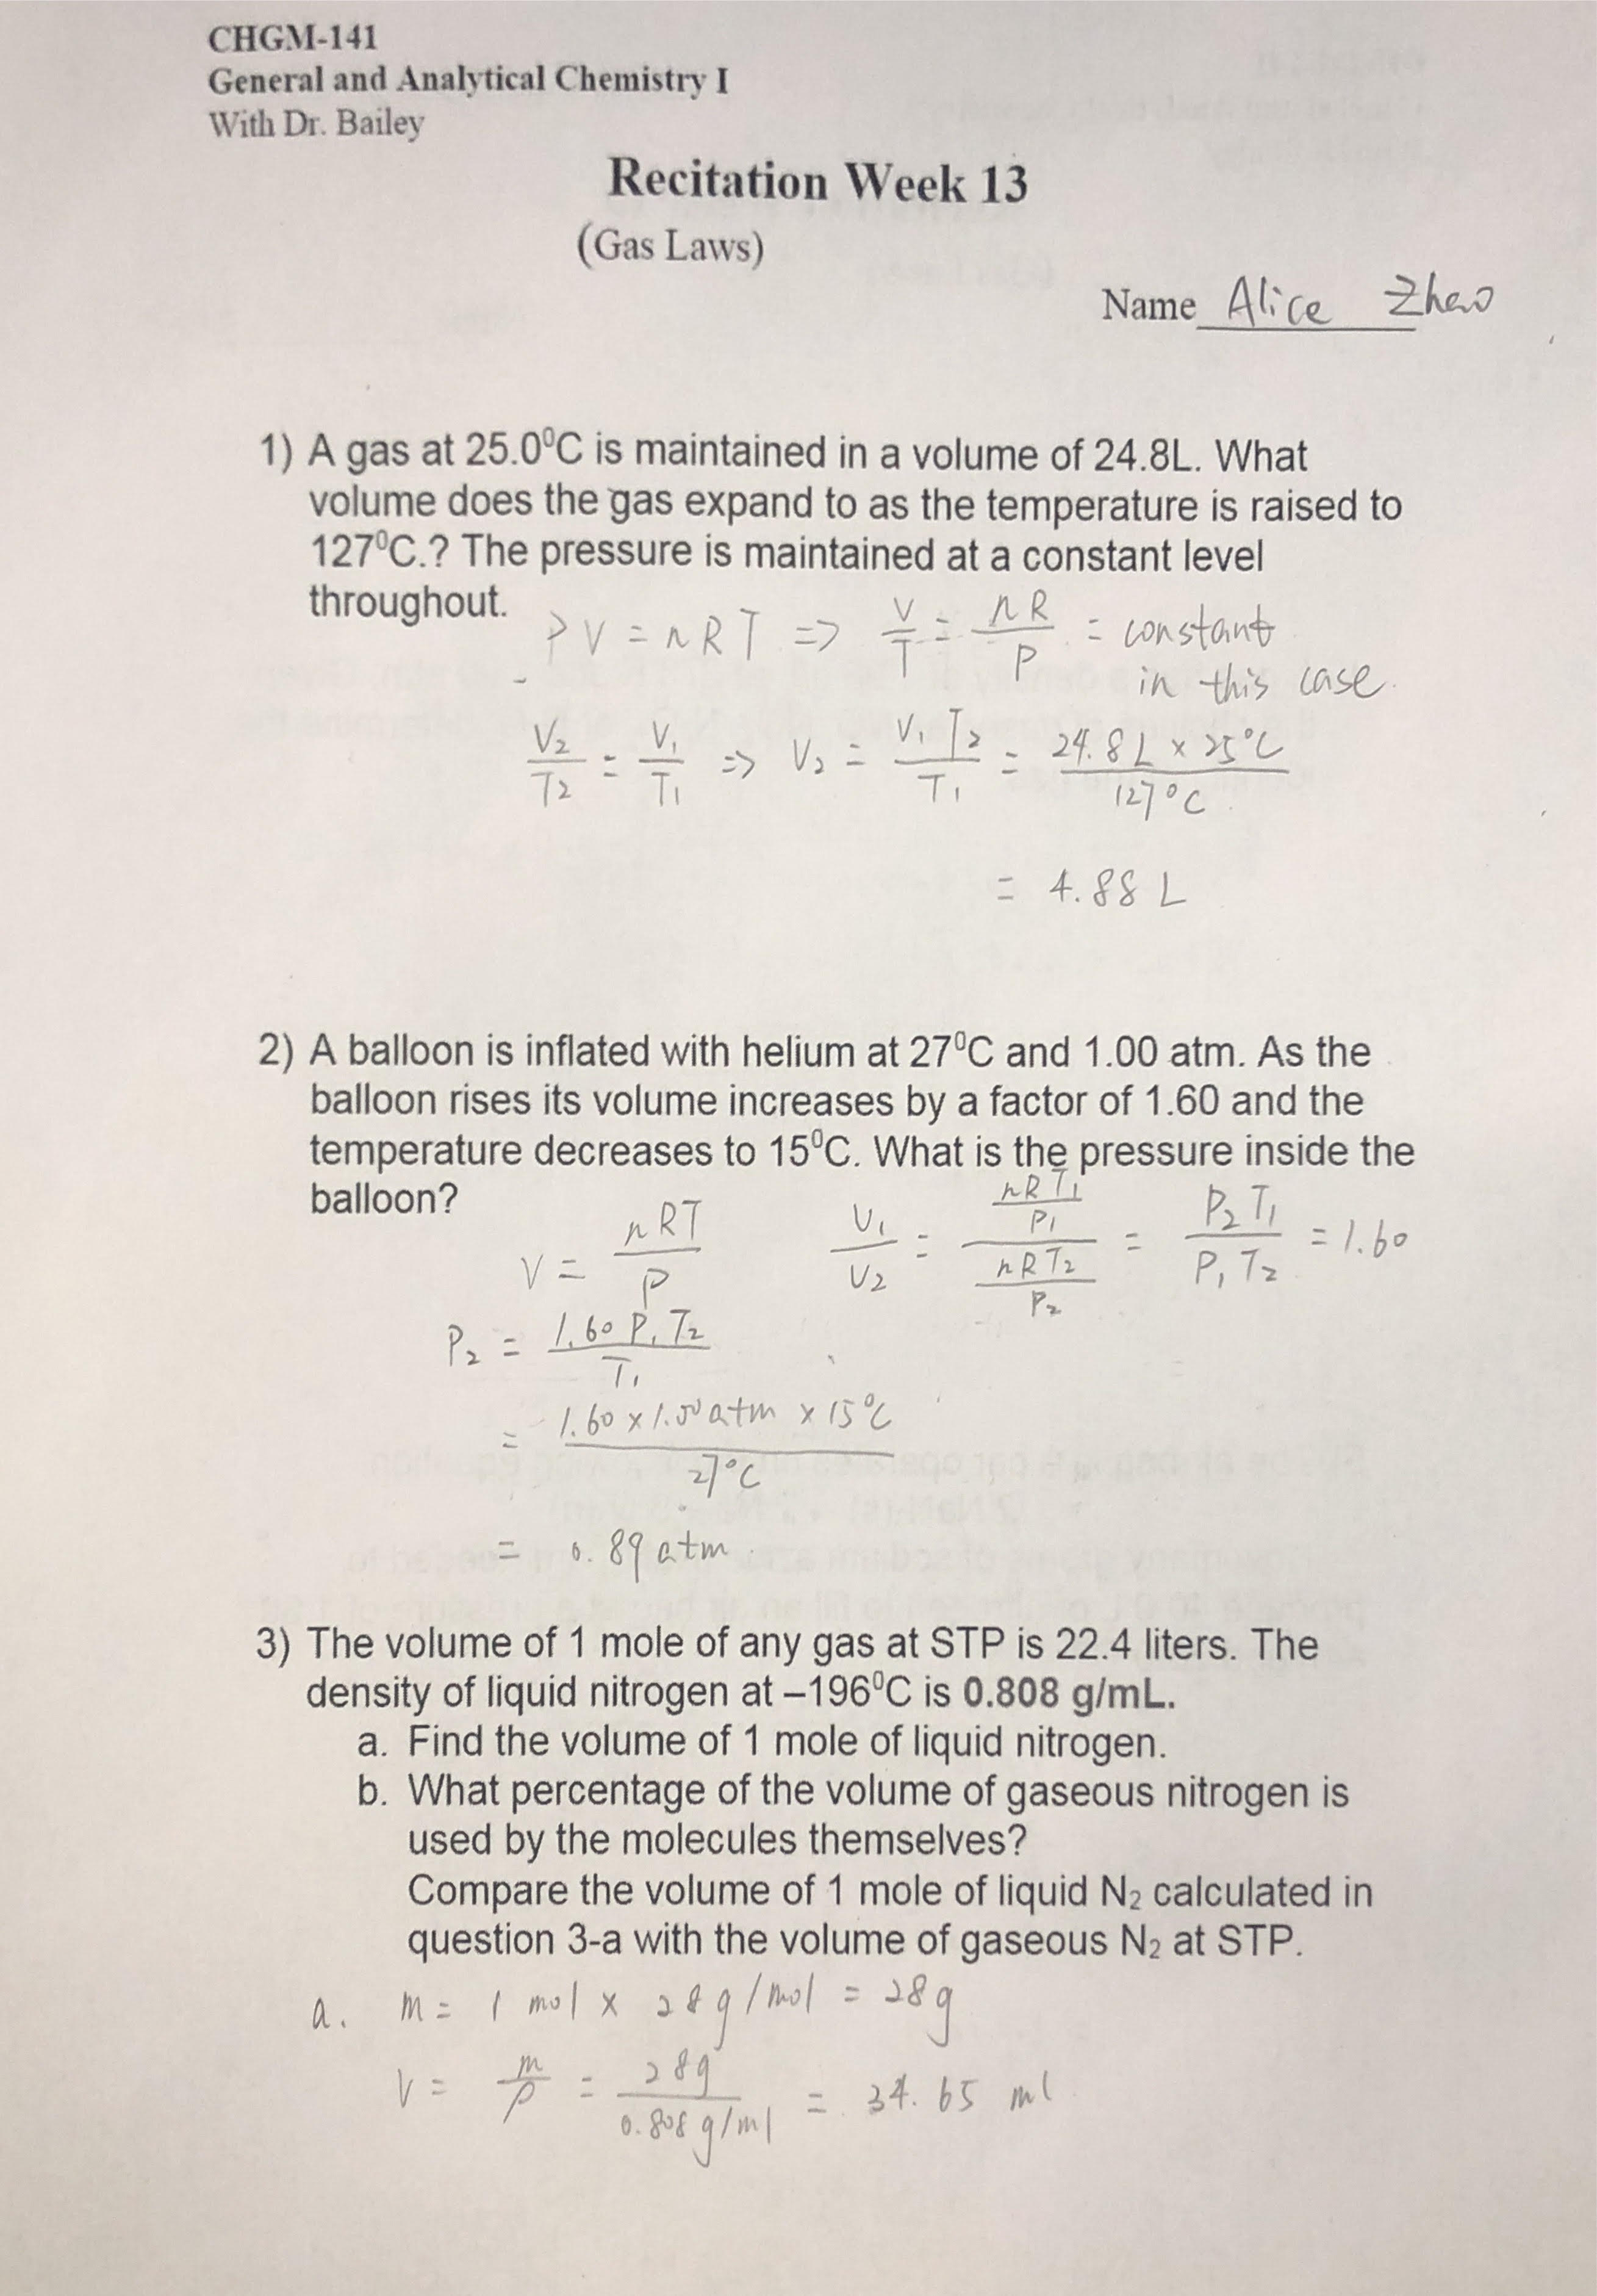 CHGM-141
General and Analytical Chemistry I
With Dr. Bailey
Recitation Week 13
(Gas Laws)
Name Alice Zhao
1) A gas at 25.0⁰C is maintained in a volume of 24.8L. What
volume does the gas expand to as the temperature is raised to
127⁰C.? The pressure is maintained at a constant level
throughout.
PV = nRT => V/T = nR/P = constant
in this case.
V₂/T₂ = V₁/T₁ => V₂ = V₁T₂/T₁ = 24.8L × 25°C/127°C
= 4.88 L
2) A balloon is inflated with helium at 27⁰C and 1.00 atm. As the
balloon rises its volume increases by a factor of 1.60 and the
temperature decreases to 15⁰C. What is the pressure inside the
balloon?
V = nRT/P V₁/V₂ = (nRT₁/P₁)/(nRT₂/P₂) = P₂T₁/P₁T₂ = 1.60
P₂ = 1.60 P₁T₂/T₁
= 1.60 × 1.00 atm × 15°C/27°C
= 0.89 atm.
3) The volume of 1 mole of any gas at STP is 22.4 liters. The
density of liquid nitrogen at –196⁰C is 0.808 g/mL.
a. Find the volume of 1 mole of liquid nitrogen.
b. What percentage of the volume of gaseous nitrogen is
used by the molecules themselves?
Compare the volume of 1 mole of liquid N₂ calculated in
question 3-a with the volume of gaseous N₂ at STP.
a. m = 1 mol × 28 g/mol = 28g
V = m/ρ = 28g/0.808 g/ml = 34.65 ml